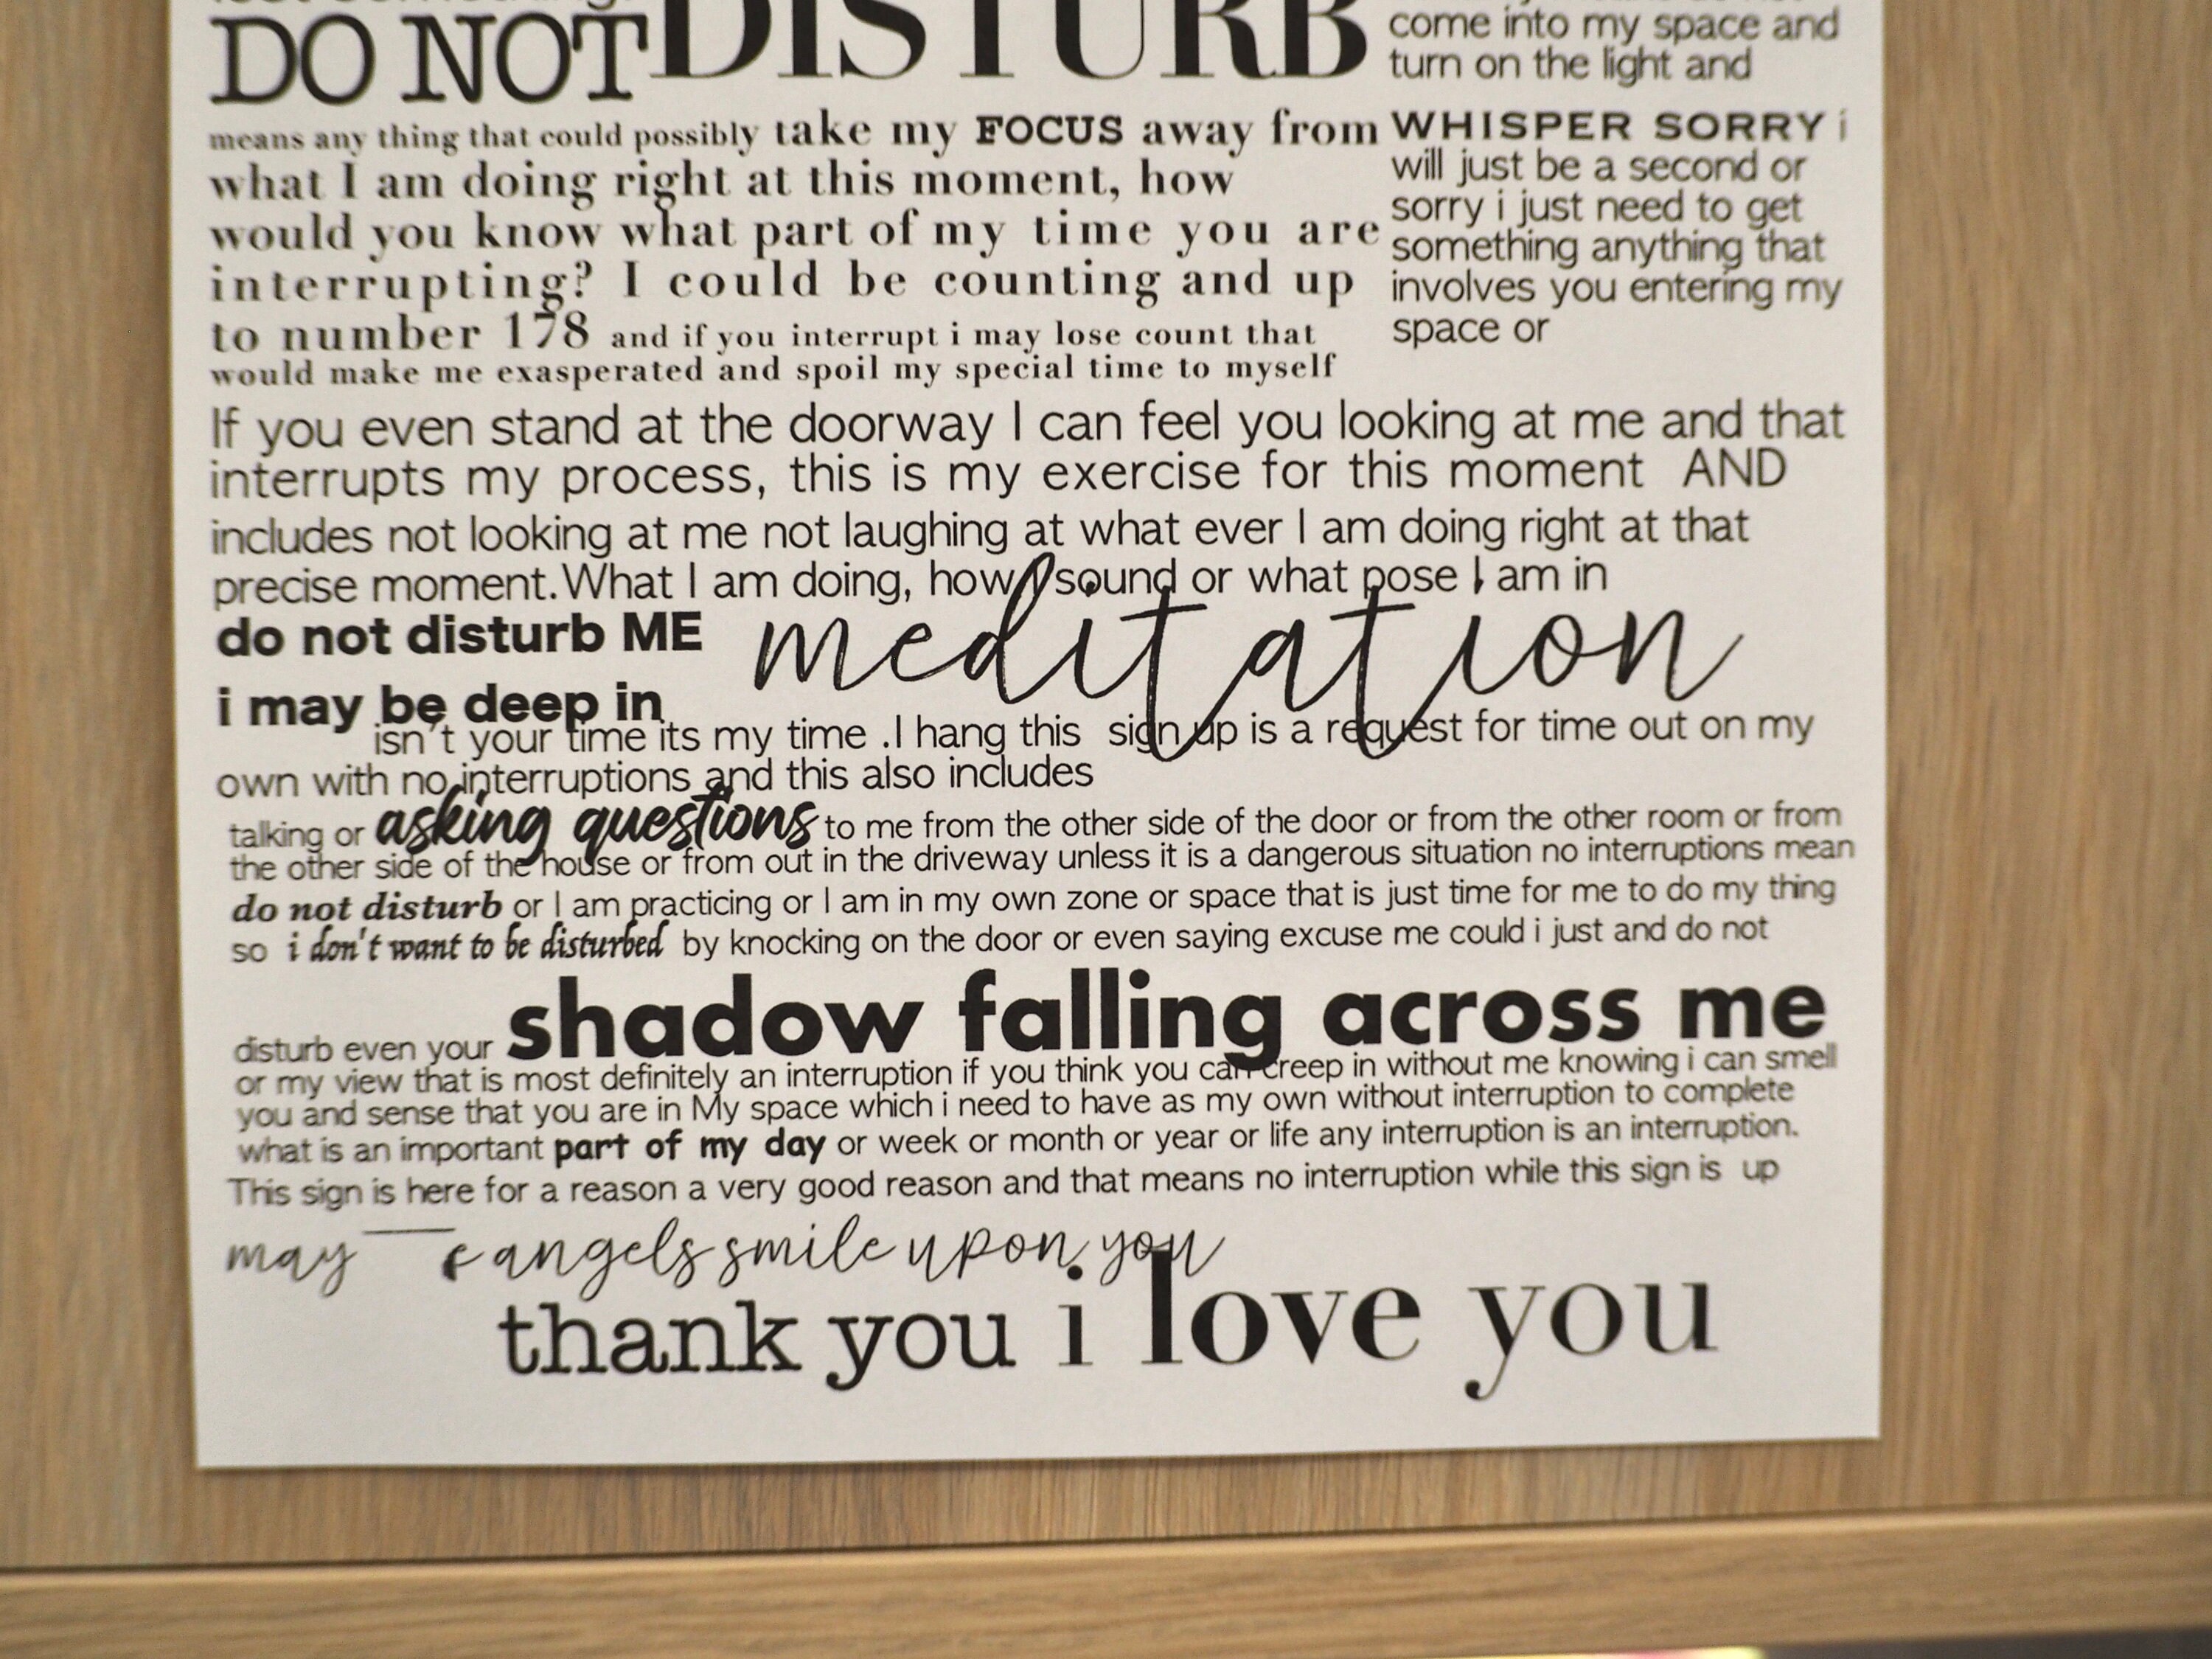 DO NOT DISTURB
means any thing that could possibly take my FOCUS away from
what I am doing right at this moment, how
would you know what part of my time you are
interrupting? I could be counting and up
to number 178 and if you interrupt i may lose count that
would make me exasperated and spoil my special time to myself
come into my space and
turn on the light and
WHISPER SORRY i
will just be a second or
sorry i just need to get
something anything that
involves you entering my
space or
If you even stand at the doorway I can feel you looking at me and that
interrupts my process, this is my exercise for this moment AND
includes not looking at me not laughing at what ever I am doing right at that
precise moment. What I am doing, how I sound or what pose I am in
do not disturb ME
i may be deep in meditation
isn't your time its my time .I hang this sign up is a request for time out on my
own with no interruptions and this also includes
talking or asking questions to me from the other side of the door or from the other room or from
the other side of the house or from out in the driveway unless it is a dangerous situation no interruptions mean
do not disturb or I am practicing or I am in my own zone or space that is just time for me to do my thing
so i don't want to be disturbed by knocking on the door or even saying excuse me could i just and do not
disturb even your shadow falling across me
or my view that is most definitely an interruption if you think you can creep in without me knowing i can smell
you and sense that you are in My space which i need to have as my own without interruption to complete
what is an important part of my day or week or month or year or life any interruption is an interruption.
This sign is here for a reason a very good reason and that means no interruption while this sign is up
may angels smile upon you
thank you i love you